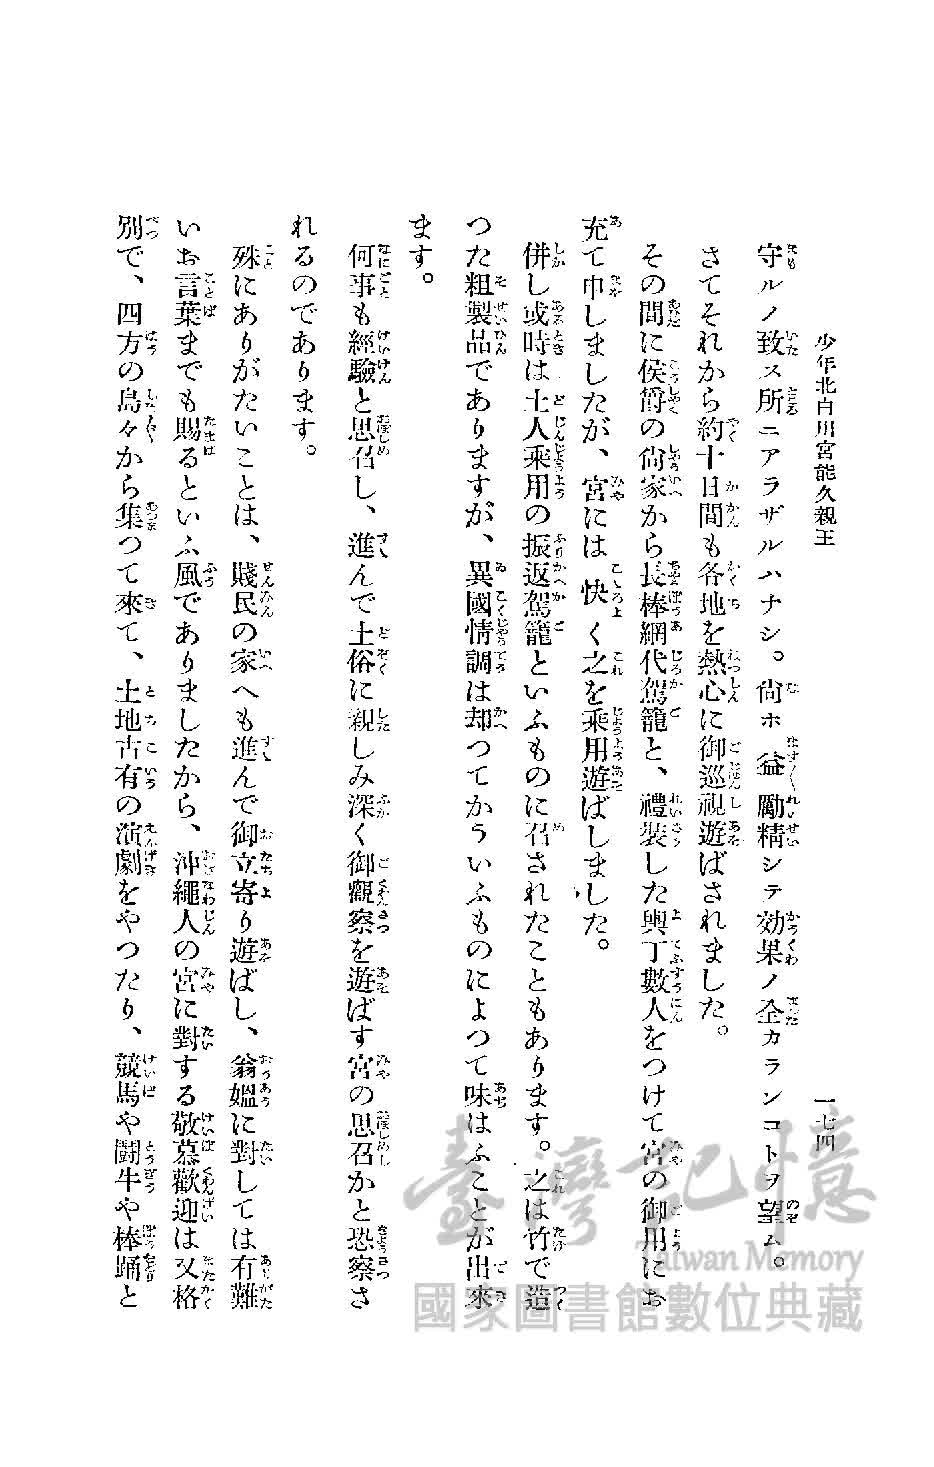 少年北白川宮能久親王
一七四
守ルノ致ス所ニアラザルハナシ。尙ホ益勵精シテ効果ノ全カランコトヲ望ム。
さてそれから約十日間も各地を熱心に御巡視遊ばされました。
その間に侯爵の尙家から長棒網代駕籠と、禮裝した輿丁數人をつけて宮の御用にお
充て申しましたが、宮には快く之を乘用遊ばしました。
併し或時は土人乘用の振返駕籠といふものに召されたこともあります。之は竹で造
つた粗製品でありますが、異國情調は却つてかういふものによつて味はふことが出來
ます。
何事も經驗と思召し、進んで土俗に親しみ深く御觀察を遊ばす宮の思召かと恐察さ
れるのであります。
殊にありがたいことは、賤民の家へも進んで御立寄り遊ばし、翁媼に對しては有難
いお言葉までも賜るといふ風でありましたから、沖繩人の宮に對する敬慕歡迎は又格
別で、四方の島々から集つて來て、土地古有の演劇をやつたり、競馬や鬪牛や棒踊と
臺灣記憶
Taiwan Memory
國家圖書館數位典藏